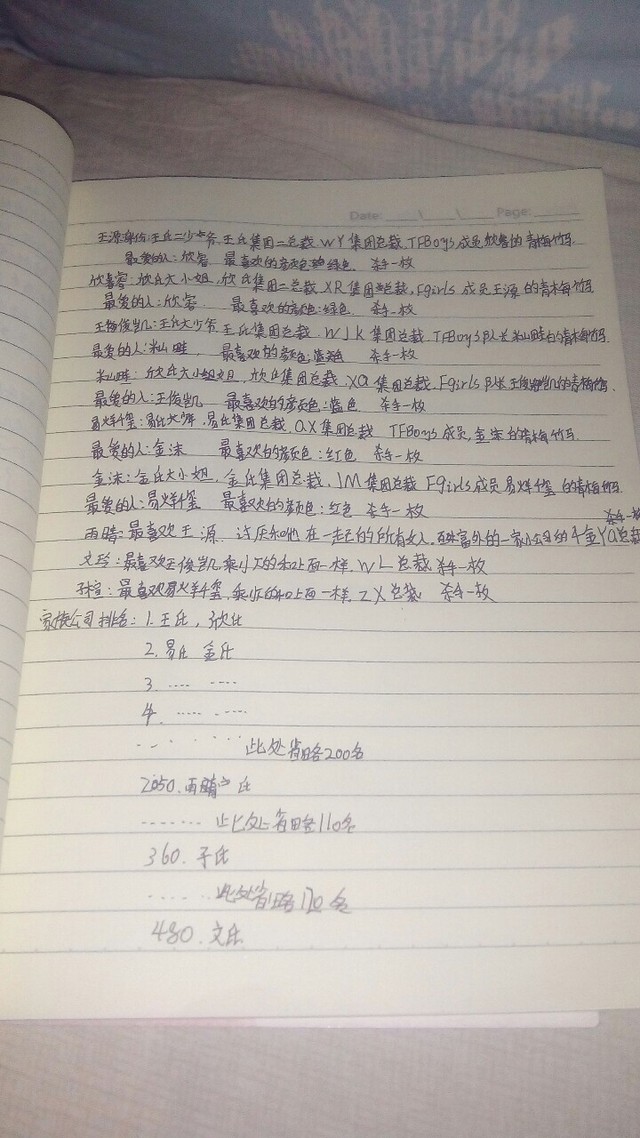 Date: Page:
王源身份:王氏二少爷、王氏集团二总裁 WY集团总裁 TFBoys成员 欣容的青梅竹马
最爱的人:欣容 最喜欢的颜色:绿色 杀手一枚
欣容:欣氏大小姐,欣氏集团二总裁 XR集团总裁,Fgirls成员王源的青梅竹马
最爱的人:欣容 最喜欢的颜色:绿色 杀手一枚
王俊凯:王氏大少爷 王氏集团总裁 WJK集团总裁 TFBoys队长 的青梅竹马
最爱的人: 最喜欢的颜色:蓝色 杀手一枚
欣氏大小姐,欣氏集团总裁,XQ集团总裁,Fgirls队长王俊凯的青梅竹马
最爱的人:王俊凯 最喜欢的颜色:蓝色 杀手一枚
易烊千玺:易氏大少爷,易氏集团总裁 QX集团总裁 TFBoys成员,金沫的青梅竹马
最爱的人:金沫 最喜欢的颜色:红色 杀手一枚
金沫:金氏大小姐,金氏集团总裁,JM集团总裁 Fgirls成员易烊千玺的青梅竹马
最爱的人:易烊千玺 最喜欢的颜色:红色 杀手一枚
雨晴:最喜欢王源 讨厌和他在一起的所有女人, 外的一家小公司的千金YQ总裁 杀手一枚
文玲:最喜欢王俊凯,剩下的和上面一样,WL总裁 杀手一枚
最喜欢易烊千玺,剩下的和上面一样,ZX总裁 杀手一枚
家族公司排名:1.王氏,欣氏
2.易氏 金氏
3. ···· ····
4. ····· ·····
······ 此处省略200名
2050.雨晴氏
······· 此处省略110名
360.子氏
······ 此处省略120名
480.文氏